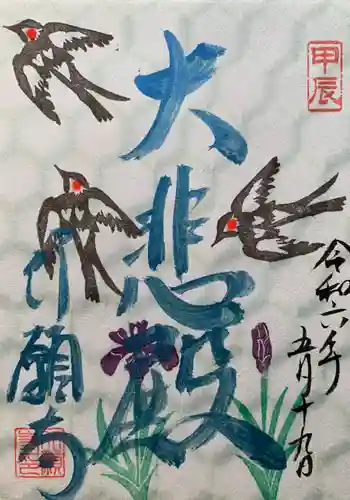 甲辰
大悲殿
令和六年
五月十九日
行願寺